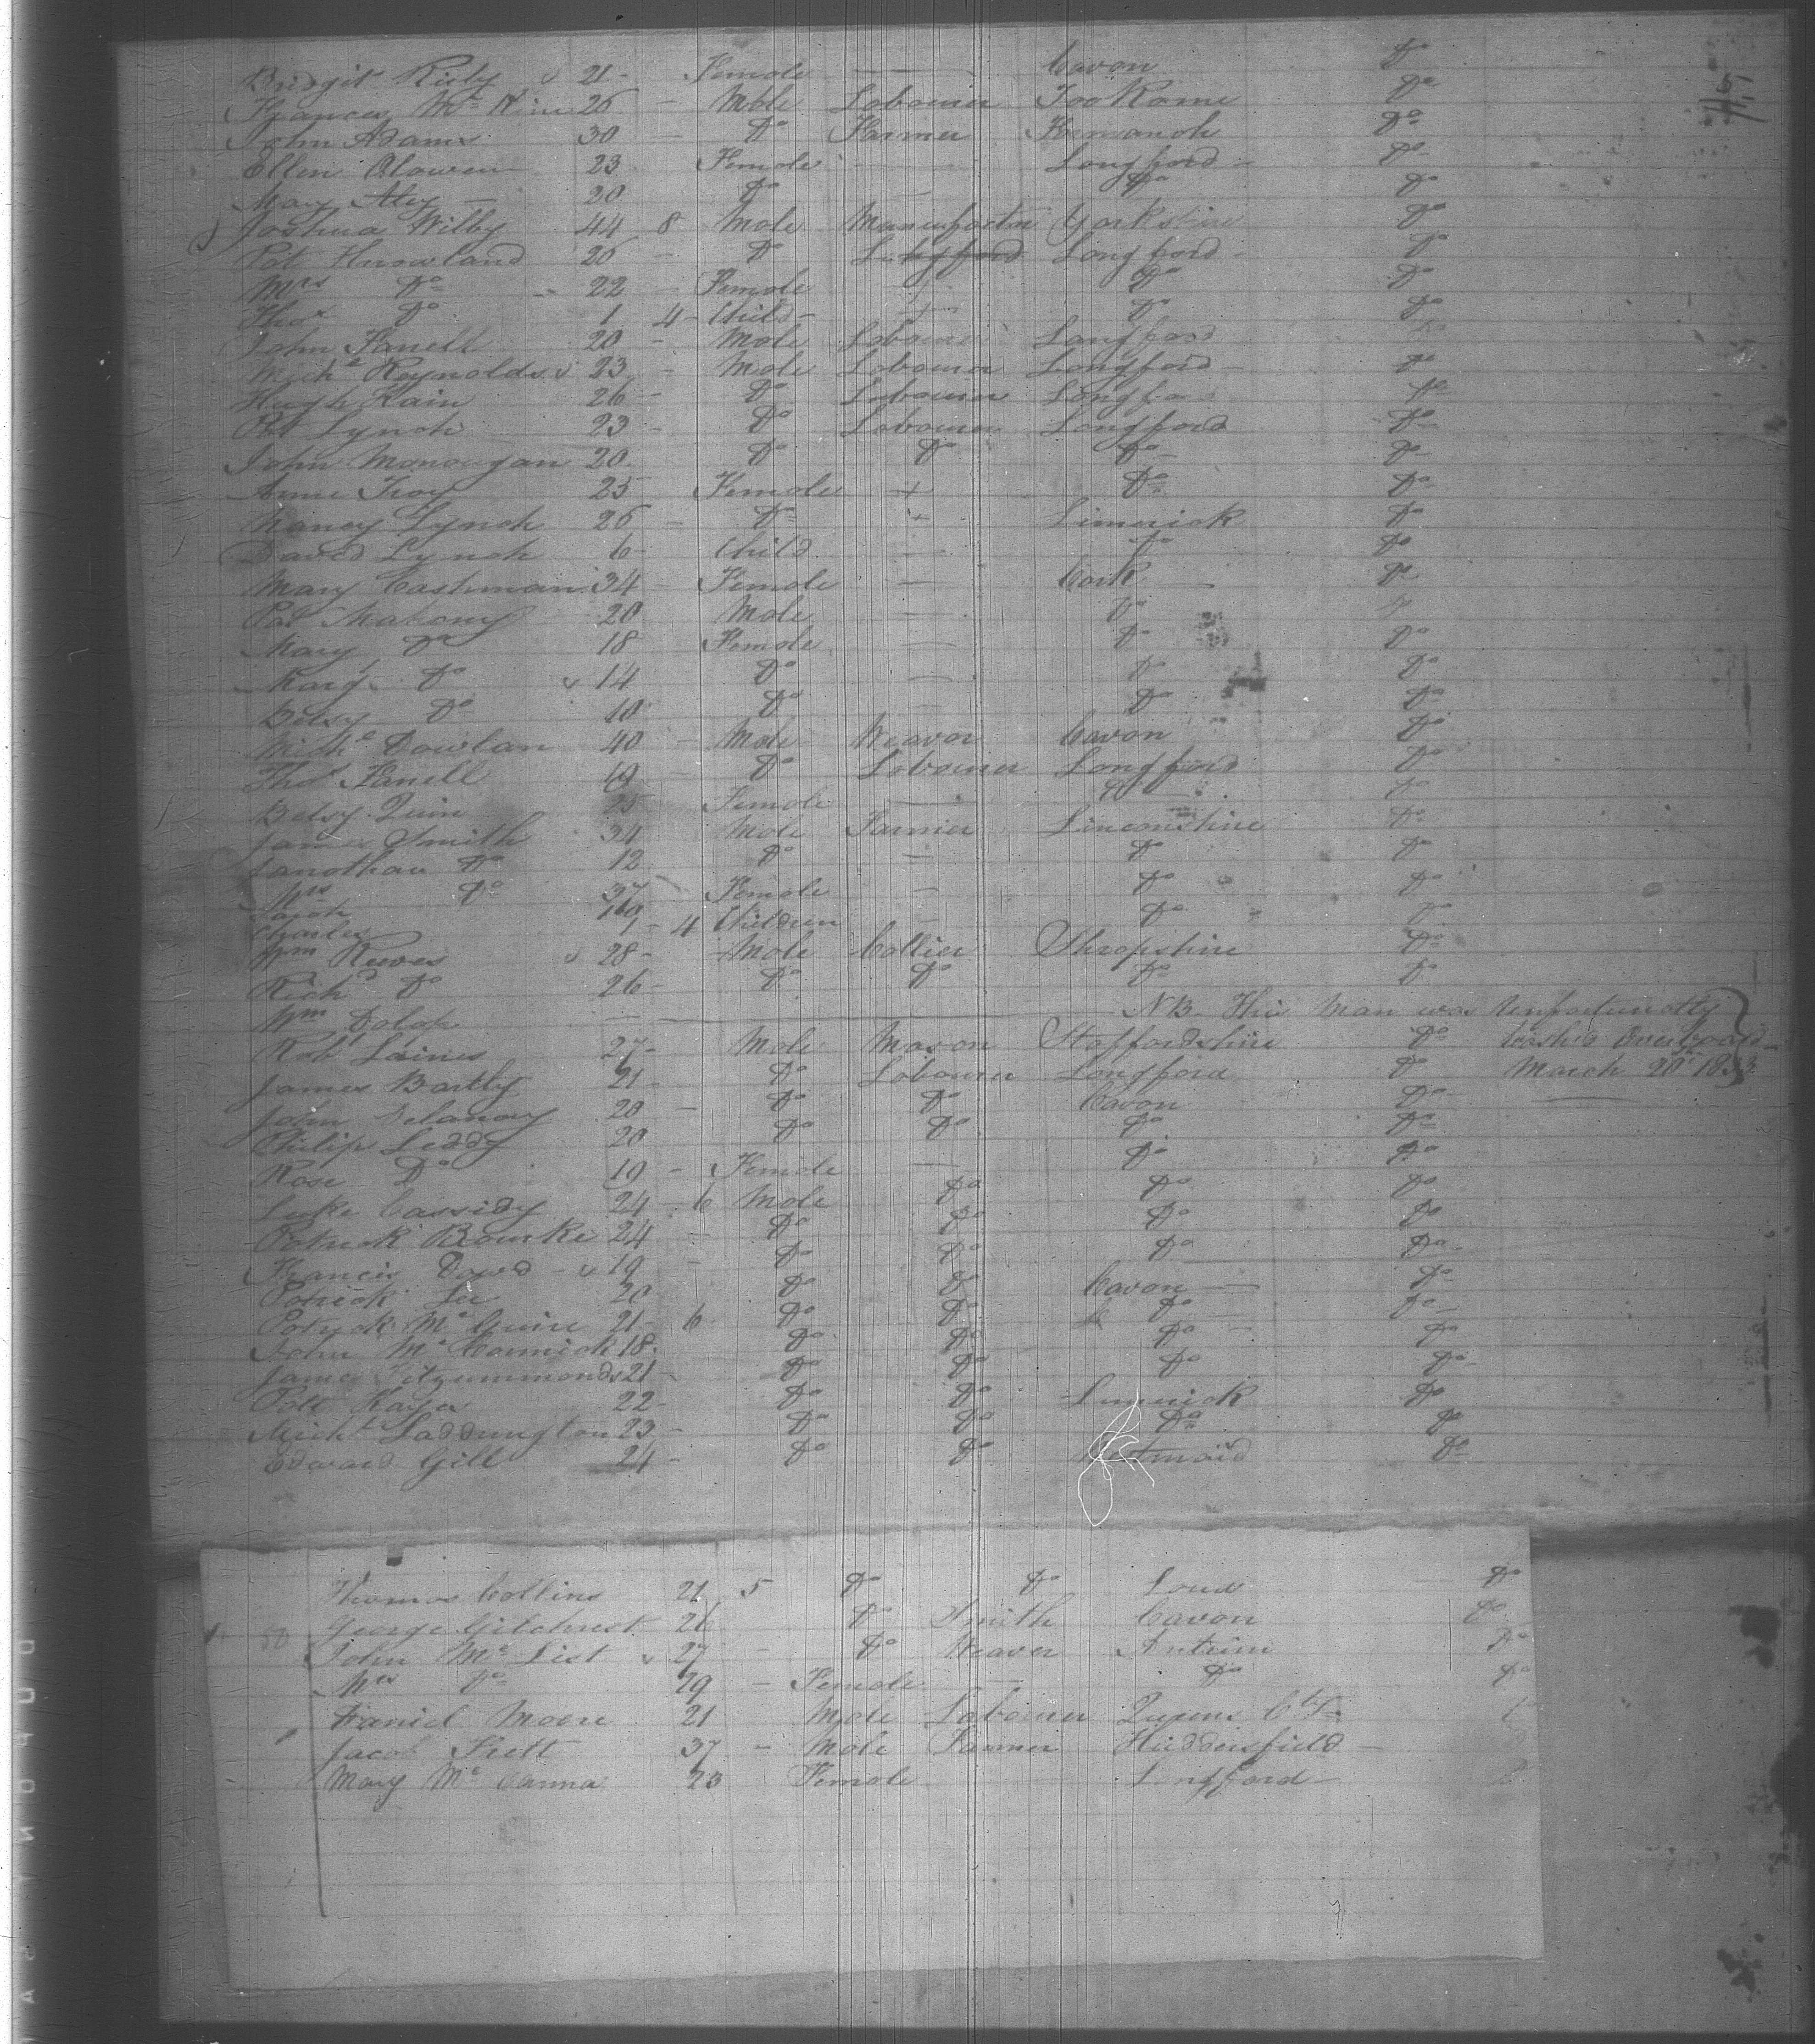 Bridgit Riely 21 - Female — Cavon Do
Frances Mc 26 - Male Labourer Do
John Adams 30 - Do Farmer Fermanah Do
Ellen 23 Female Longford Do
Mary 20 Do Do Do
Joshua Wilby 44 8 Male Yorkshire Do
Pat 26 - Do Longford Longford Do
Mrs Do 22 - Female + Do Do
Thos Do 1 4 Child + Do Do
John Farrell 20 - Male Labourer Longford Do
Michl Reynolds 23 - Male Labourer Longford Do
Hugh Kain 26 - Do Labourer Longford Do
Pat Lynch 23 - Do Labourer Longford Do
John Monowgan 20 Do Do Do Do
Anne Troy 25 Female + Do Do
Nancy Lynch 26 - Do + Limerick Do
David Lynch 6 - Child — Do Do
Mary Cashman 34 - Female — Cork Do
Pat Mahony 20 Male — Do Do
Mary Do 18 Female — Do Do
Marg Do 14 Do — Do Do
Betsy Do 10 Do — Do Do
Michl Dowlan 40 - Male Weavor Cavon Do
Thos Farrell 19 - Do Labourer Longford Do
Betsy Quin 25 Female — Do Do
James Smith 34 Male Farmer Linconshire Do
Janothan Do 12 Do — Do Do
Mrs Do 37 Female — Do Do
Sarah 10
Charles 1 - 4 Children — Do Do
Wm Reeves 28 - Male Collier Shropshire Do
Richd Do 26 - Do Do Do Do
Wm NB This Man was Unfortunatly
Robt Laines 27 - Male Mason Staffordshire Do Washd Overboard
James Bartly 21 - Do Labourer Longford Do March 20th 1833
John Delanay 20 - Do Do Cavon Do
Philip Leddy 20 Do Do Do Do
Rose Do 19 - Female — Do Do
Luke Cassidy 24 - 6 Male Do Do Do
Patrick Bourke 24 - Do Do Do Do
Francis Dowd 19 - Do Do Do Do
Patrick Lee 20 Do Do Cavon Do
Patrick Mc Guire 21 - 6 Do Do Do Do
John Mc Cormick 18 Do Do Do Do
James Fitzsimmonds 21 - Do Do Do Do
Patt Kayes 22 - Do Do Limerick Do
Michl Laddington 23 - Do Do Do Do
Edward Gill 24 - Do Do Do
Thomas Collins 21 5 Do Do Do
George Gilchrest 26 Do Smith Cavon Do
John Mc List 27 - Do Weaver Antrim Do
Mrs Do 29 - Female Do Do
Daniel Moore 21 Male Labourer Queens Cty
Jacob Frett 37 - Male Farmer Huddersfield
Mary Mc Canna 23 Female Longford